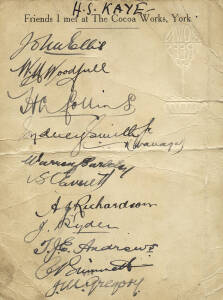 H.S. KAYE
Friends I met at The Cocoa Works, York
John Ellis
W M Woodfull
H L Collins
Sydney Smith Jr
Kavanagh
Warren Bardsley
S C Everett
A J Richardson
J. Ryder
T. J. E. Andrews
C V Grimmett
J M Gregory